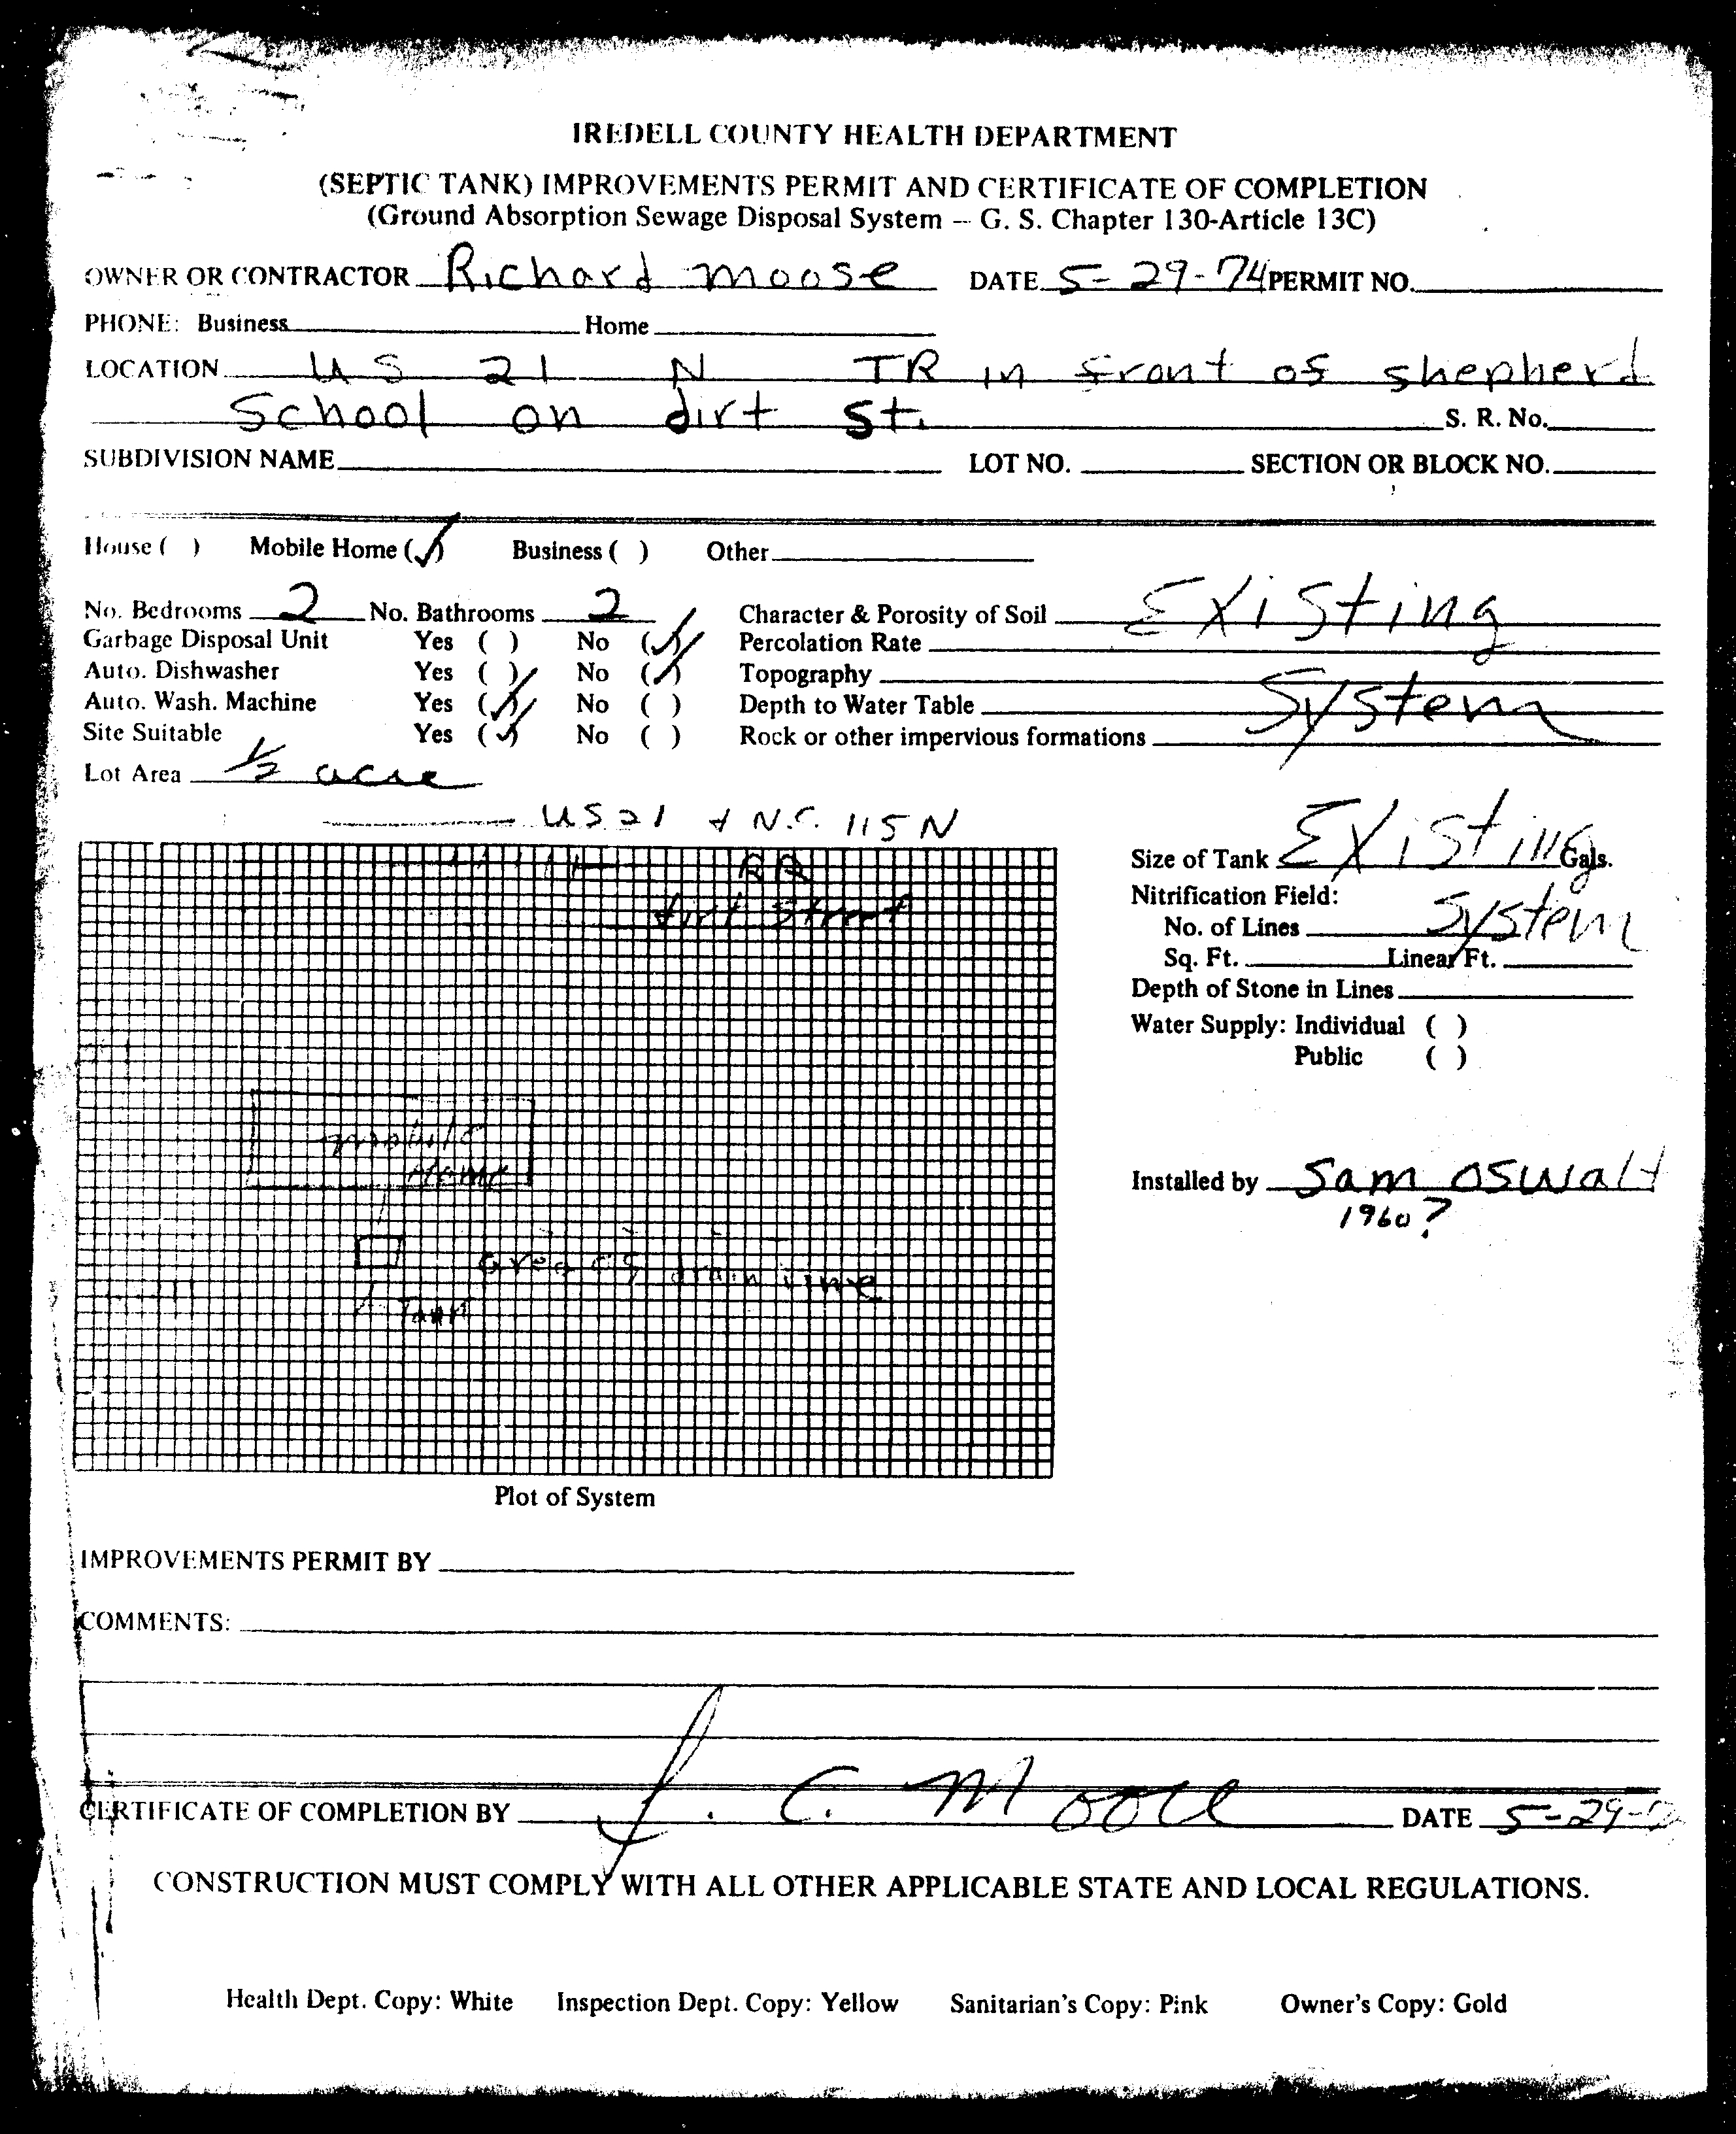 IREDELL COUNTY HEALTH DEPARTMENT
(SEPTIC TANK) IMPROVEMENTS PERMIT AND CERTIFICATE OF COMPLETION
(Ground Absorption Sewage Disposal System -- G. S. Chapter 130-Article 13C)
OWNER OR CONTRACTOR Richard moose DATE 5-29-74 PERMIT NO.
PHONE: Business Home
LOCATION US 21 N TR in front of shepherd
School on dirt St. S. R. No.
SUBDIVISION NAME LOT NO. SECTION OR BLOCK NO.
House ( ) Mobile Home (✓) Business ( ) Other
No. Bedrooms 2 No. Bathrooms 2 Character & Porosity of Soil Existing
Garbage Disposal Unit Yes ( ) No (✓) Percolation Rate
Auto. Dishwasher Yes ( ) No (✓) Topography
Auto. Wash. Machine Yes (✓) No ( ) Depth to Water Table System
Site Suitable Yes (✓) No ( ) Rock or other impervious formations
Lot Area 1/2 acre
US 21 + N.C. 115 N
RR
dirt Street
mobile
Home
area of drain line
Tank
Plot of System
Size of Tank Existing Gals.
Nitrification Field:
No. of Lines System
Sq. Ft. Linear Ft.
Depth of Stone in Lines
Water Supply: Individual ( )
Public ( )
Installed by Sam Oswalt
1960?
IMPROVEMENTS PERMIT BY
COMMENTS:
CERTIFICATE OF COMPLETION BY J. C. Moore DATE 5-29-
CONSTRUCTION MUST COMPLY WITH ALL OTHER APPLICABLE STATE AND LOCAL REGULATIONS.
Health Dept. Copy: White Inspection Dept. Copy: Yellow Sanitarian's Copy: Pink Owner's Copy: Gold